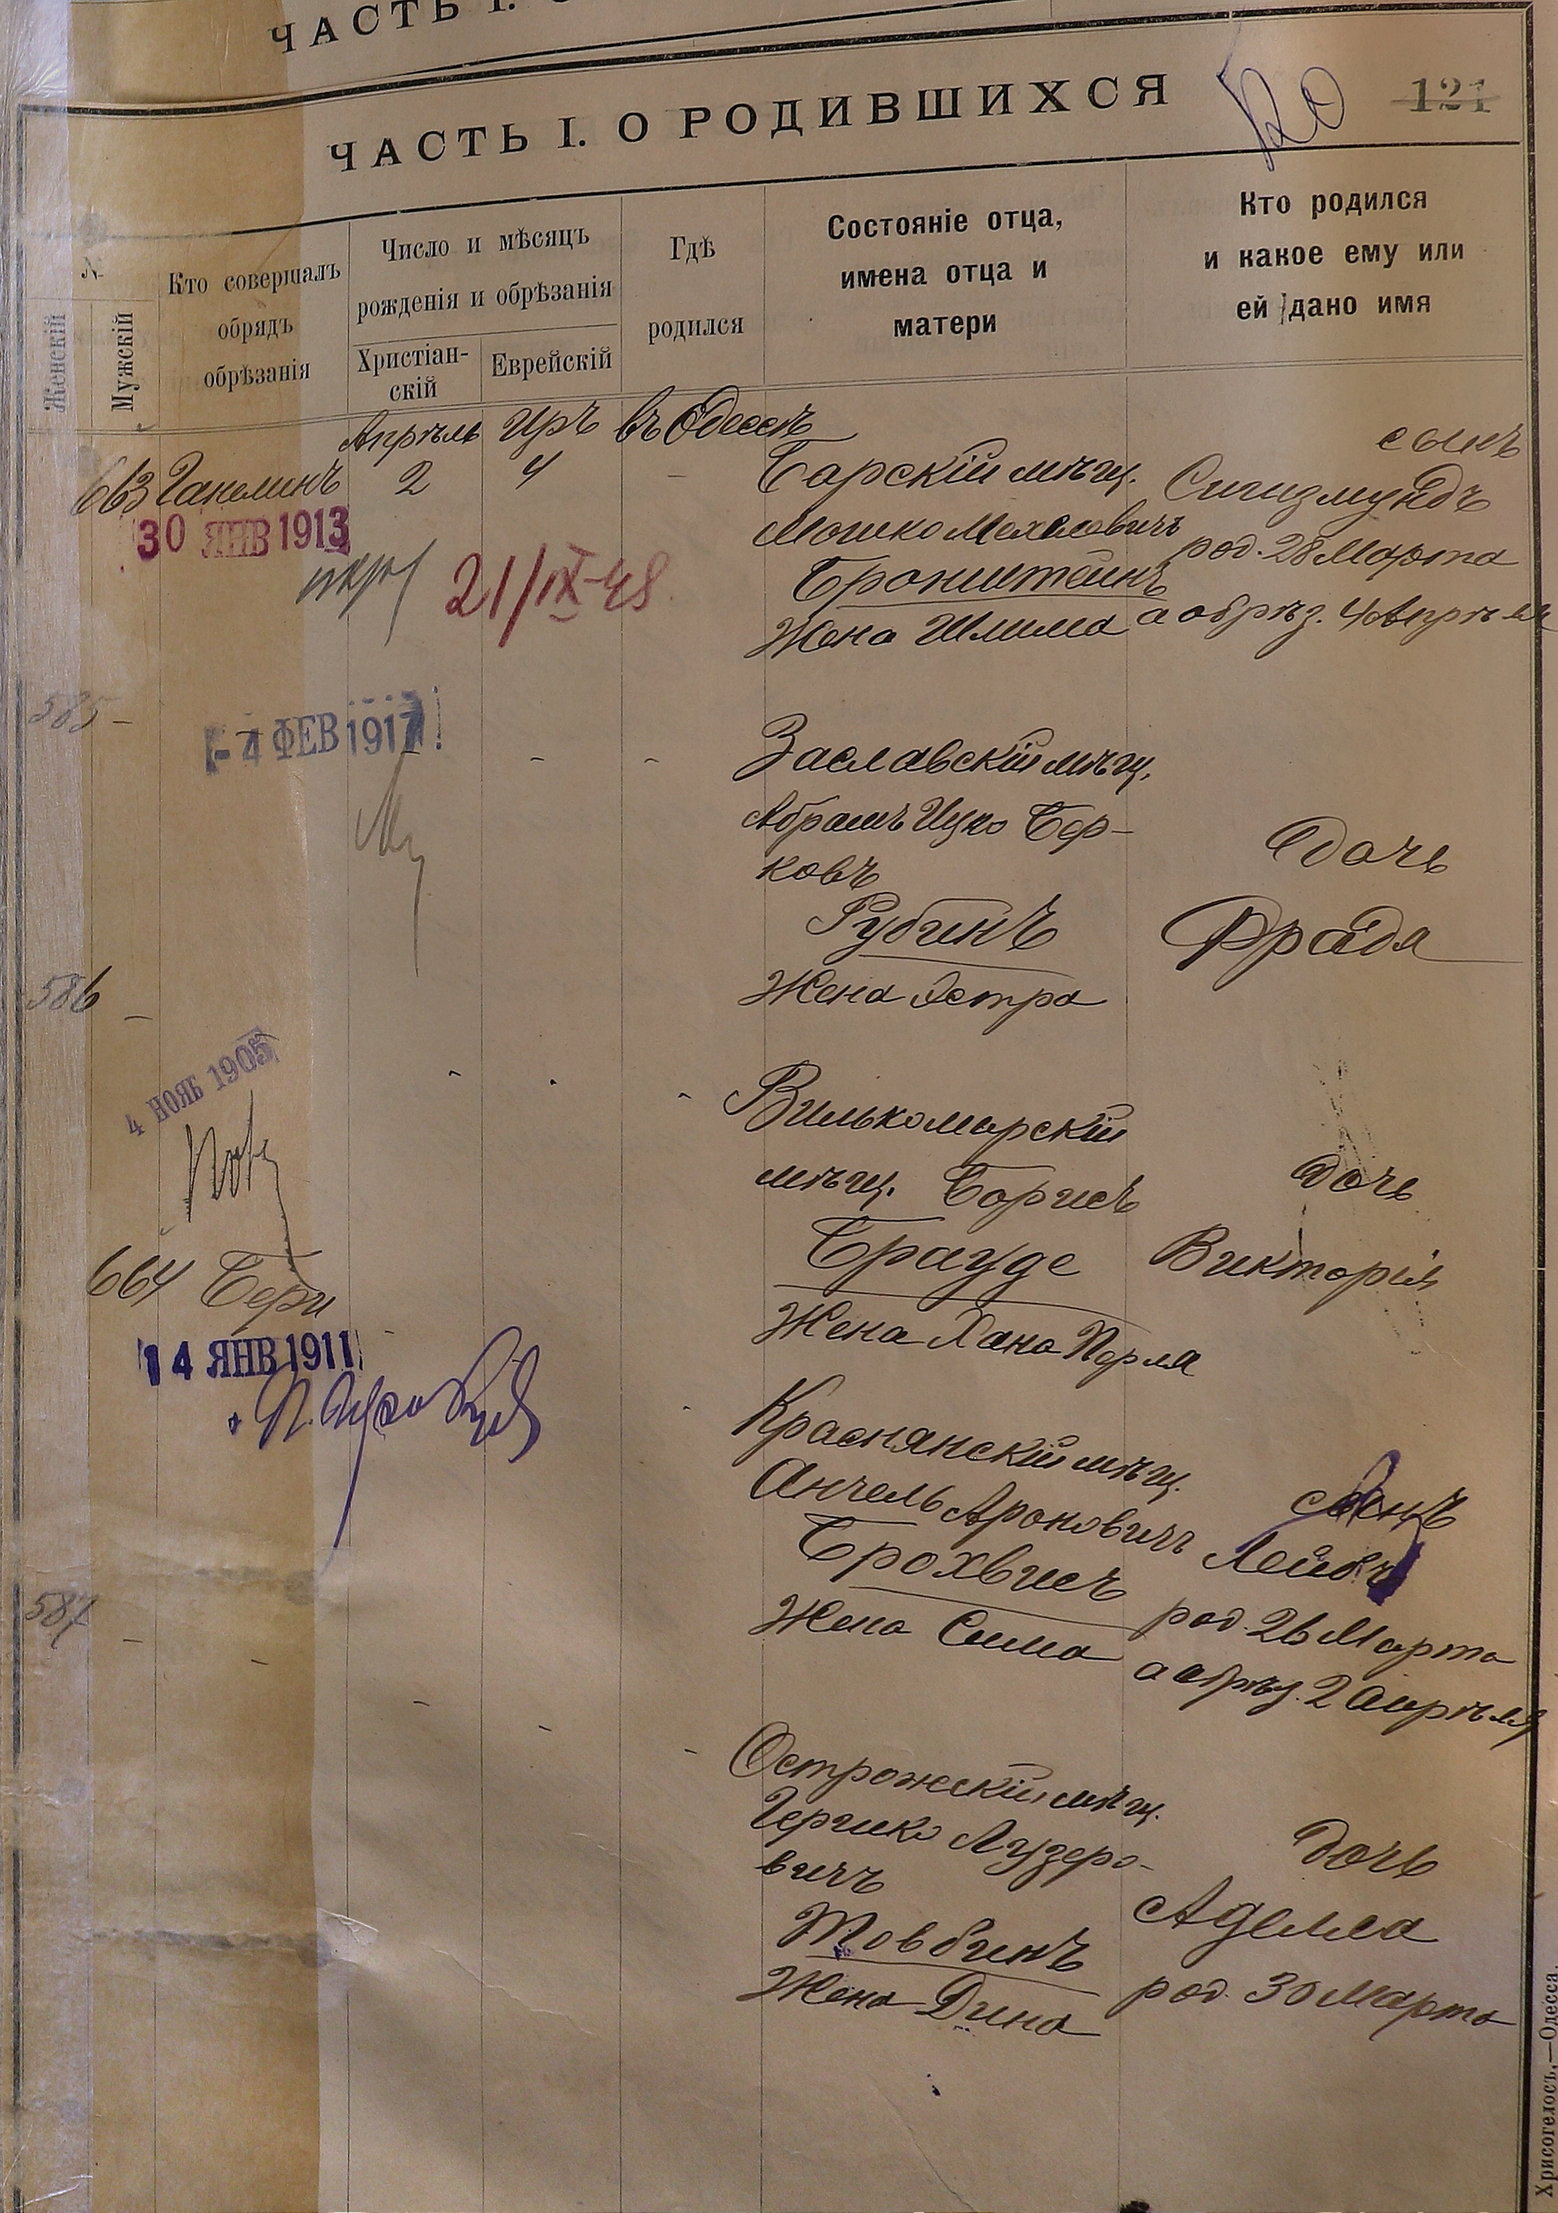 ЧАСТЬ I.
ЧАСТЬ I. О РОДИВШИХСЯ
120
121
№
Женскій
Мужскій
Кто совершалъ
обрядъ
обрѣзанія
Число и мѣсяцъ
рожденія и обрѣзанія
Христіан-
скій
Еврейскій
Гдѣ
родился
Состояніе отца,
имена отца и
матери
Кто родился
и какое ему или
ей дано имя
Апрѣль Иръ въ Одессѣ
663 Ганелинъ 2 4 –
30 ЯНВ 1913
21/IX-48
Барскій мѣщ.
Мошко Мехелевичъ
Бронштейнъ
Жена Шлима
сынъ
Сигизмундъ
род. 28 Марта
а обрѣз. 4 Апрѣля
585 –
- 4 ФЕВ 1917
Заславскій мѣщ.
Абрамъ Ицко Бер-
ковъ
Рубинъ
Жена Эстра
дочь
Фрайда
586 –
4 НОЯБ 1905
Вилькомирскій
мѣщ. Борисъ
Брауде
Жена Хана Перля
дочь
Викторія
664 Бери
14 ЯНВ 1911
Краснянскій мѣщ.
Анчель Ароновичъ
Брохвисъ
Жена Сима
сынъ
Лейбъ
род. 26 Марта
а обрѣз. 2 Апрѣля
587 –
Острожскій мѣщ.
Гершко Лузеро-
вичъ
Товбинъ
Жена Дина
дочь
Аделла
род. 30 Марта
Хрисогелосъ,—Одесса.